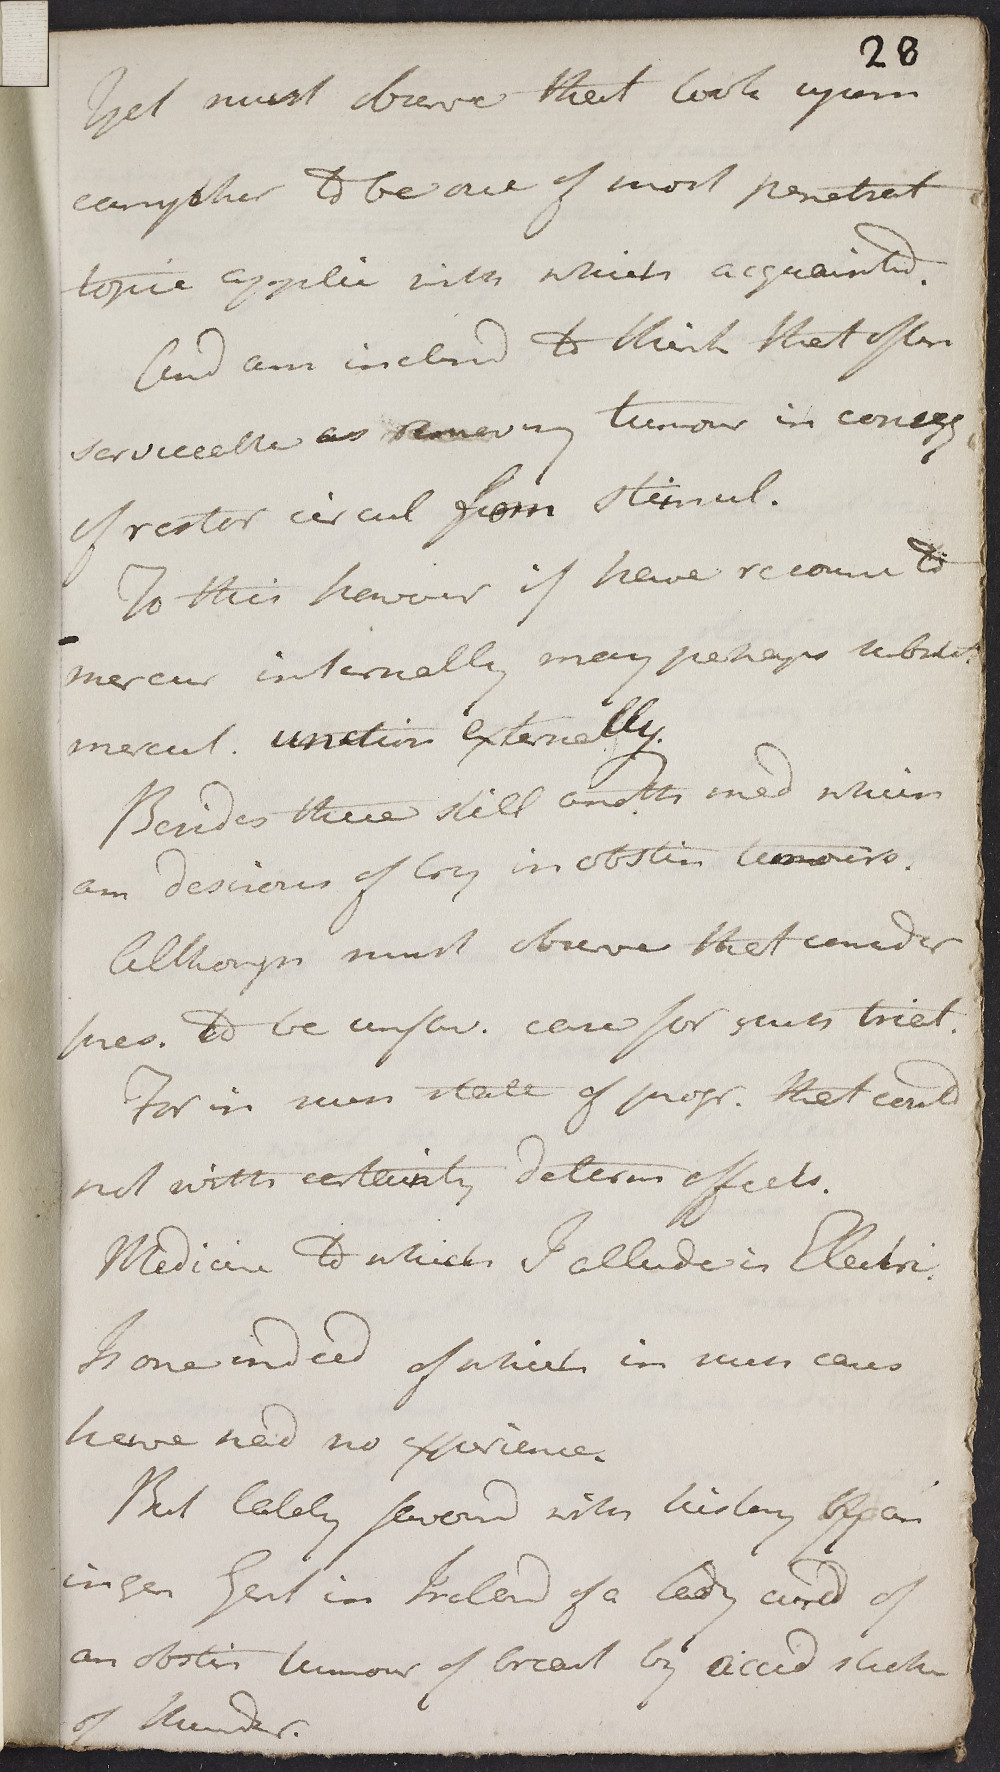 28
Yet must observe that look upon
campher to be one of most penetrat
topic applic with which acquaintd.
And am inclend to think that often
serviceable as removing tumour in conseq
of restor circul from stimul.
To this however if have recourse to
mercur internally may perhaps substit.
mercul. unction externally.
Besides these still anoth med which
am desirous of try in obstin tumours.
Although must observe that consider
pres. to be unfav. case for such trial.
For in such state of progr. that could
not with certainty determ effects.
Medicine to which I allude is Electri.
Is one indeed of which in such cases
have had no experience.
But lately favourd with history by an
ingen Gent in Ireland of a lady cured of
an obstin tumour of breast by accid stroke
of thunder.